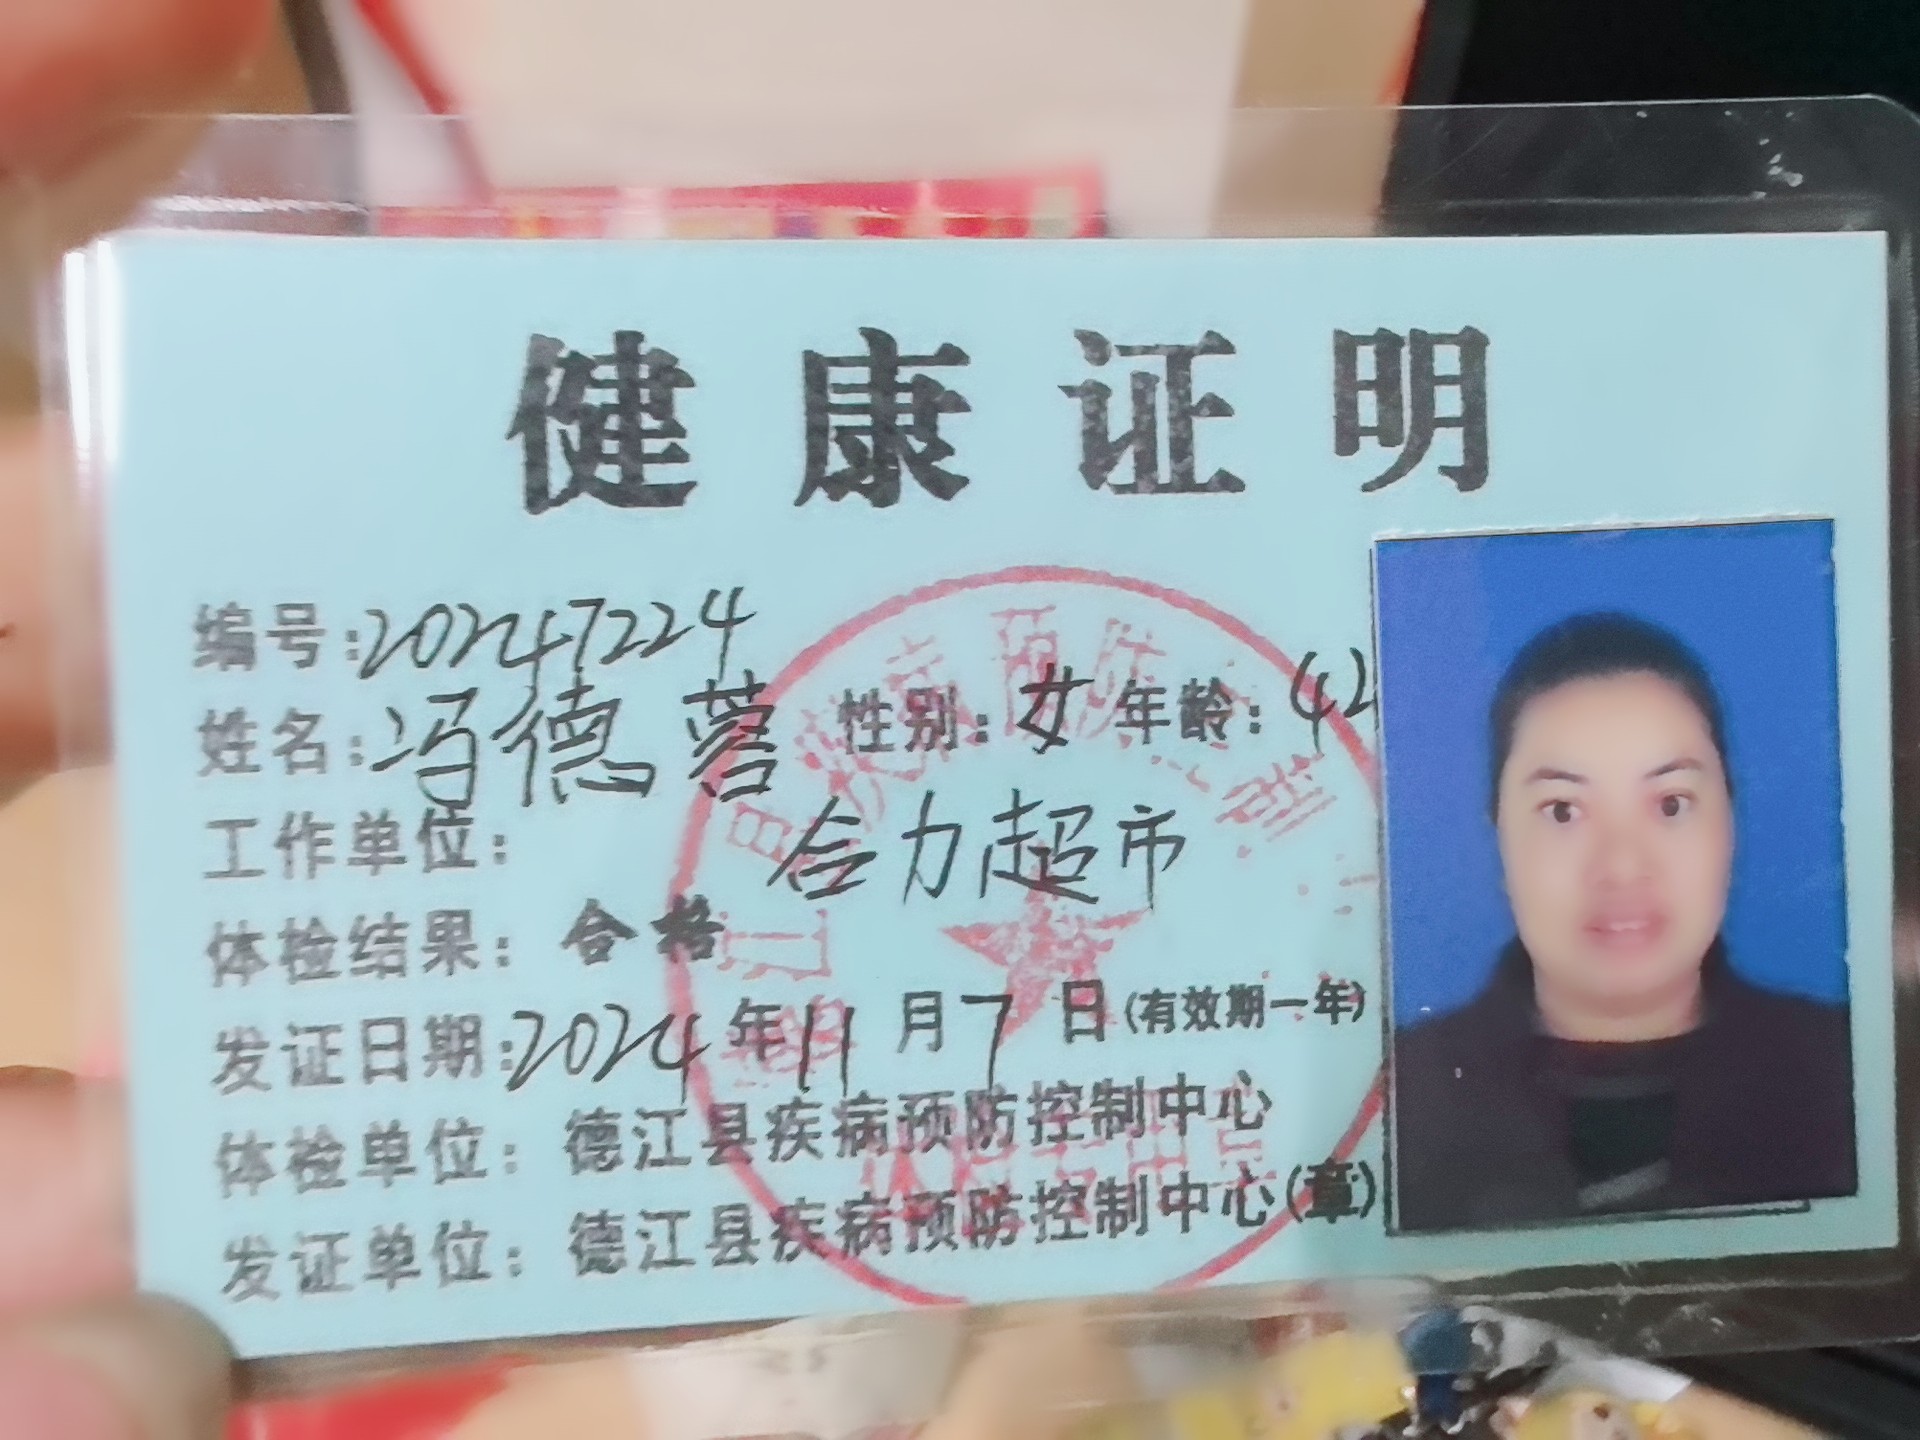 健康证明
编号:20247224
姓名:冯德蓉 性别:女 年龄:42
工作单位: 合力超市
体检结果: 合格
发证日期:2024年11月7日(有效期一年)
体检单位: 德江县疾病预防控制中心
发证单位: 德江县疾病预防控制中心(章)